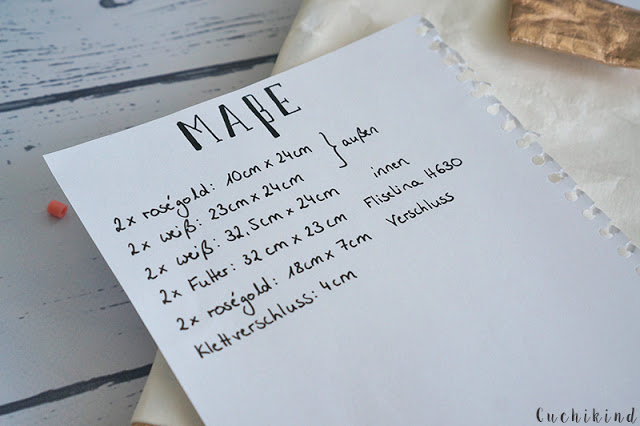 MAßE
2x roségold: 10cm x 24cm } außen
2x weiß: 23cm x 24cm
2x weiß: 32,5cm x 24cm innen
2x Futter: 32cm x 23cm Fliselina H630
2x roségold: 18cm x 7cm Verschluss
Klettverschluss: 4cm
Cuchikind